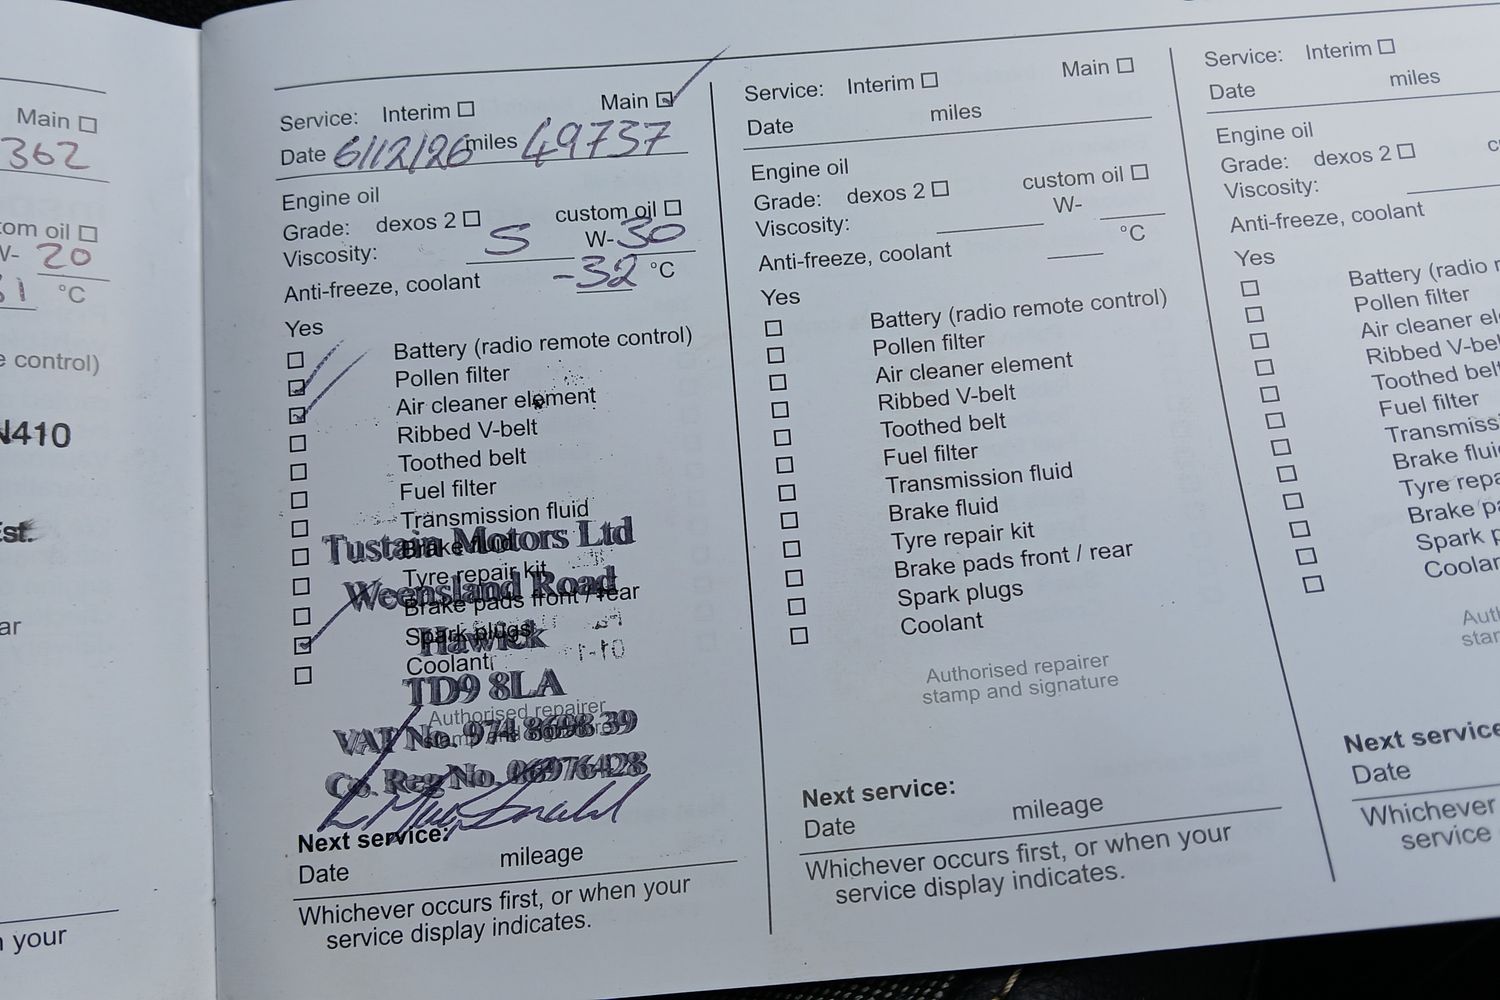 Main
362
tom oil
W- 20
31 °C
e control)
N410
Est.
ar
n your
Service: Interim Main
Date 6/12/26 miles 49737
Engine oil
Grade: dexos 2 custom oil
Viscosity: 5 W-30
Anti-freeze, coolant -32 °C
Yes
Battery (radio remote control)
Pollen filter
Air cleaner element
Ribbed V-belt
Toothed belt
Fuel filter
Transmission fluid
Brake fluid
Tyre repair kit
Brake pads front / rear
Spark plugs
Coolant
Tustain Motors Ltd
Weensland Road
Hawick
TD9 8LA
Authorised repairer
stamp and signature
VAT No. 974 8698 39
Co. Reg No. 06976428
Next service:
Date mileage
Whichever occurs first, or when your
service display indicates.
Service: Interim Main
Date miles
Engine oil
Grade: dexos 2 custom oil
Viscosity: W-
Anti-freeze, coolant °C
Yes
Battery (radio remote control)
Pollen filter
Air cleaner element
Ribbed V-belt
Toothed belt
Fuel filter
Transmission fluid
Brake fluid
Tyre repair kit
Brake pads front / rear
Spark plugs
Coolant
Authorised repairer
stamp and signature
Next service:
Date mileage
Whichever occurs first, or when your
service display indicates.
Service: Interim
Date miles
Engine oil
Grade: dexos 2 c
Viscosity:
Anti-freeze, coolant
Yes
Battery (radio r
Pollen filter
Air cleaner ele
Ribbed V-bel
Toothed belt
Fuel filter
Transmiss
Brake fluid
Tyre repa
Brake pa
Spark p
Coolan
Auth
stam
Next service
Date
Whichever
service